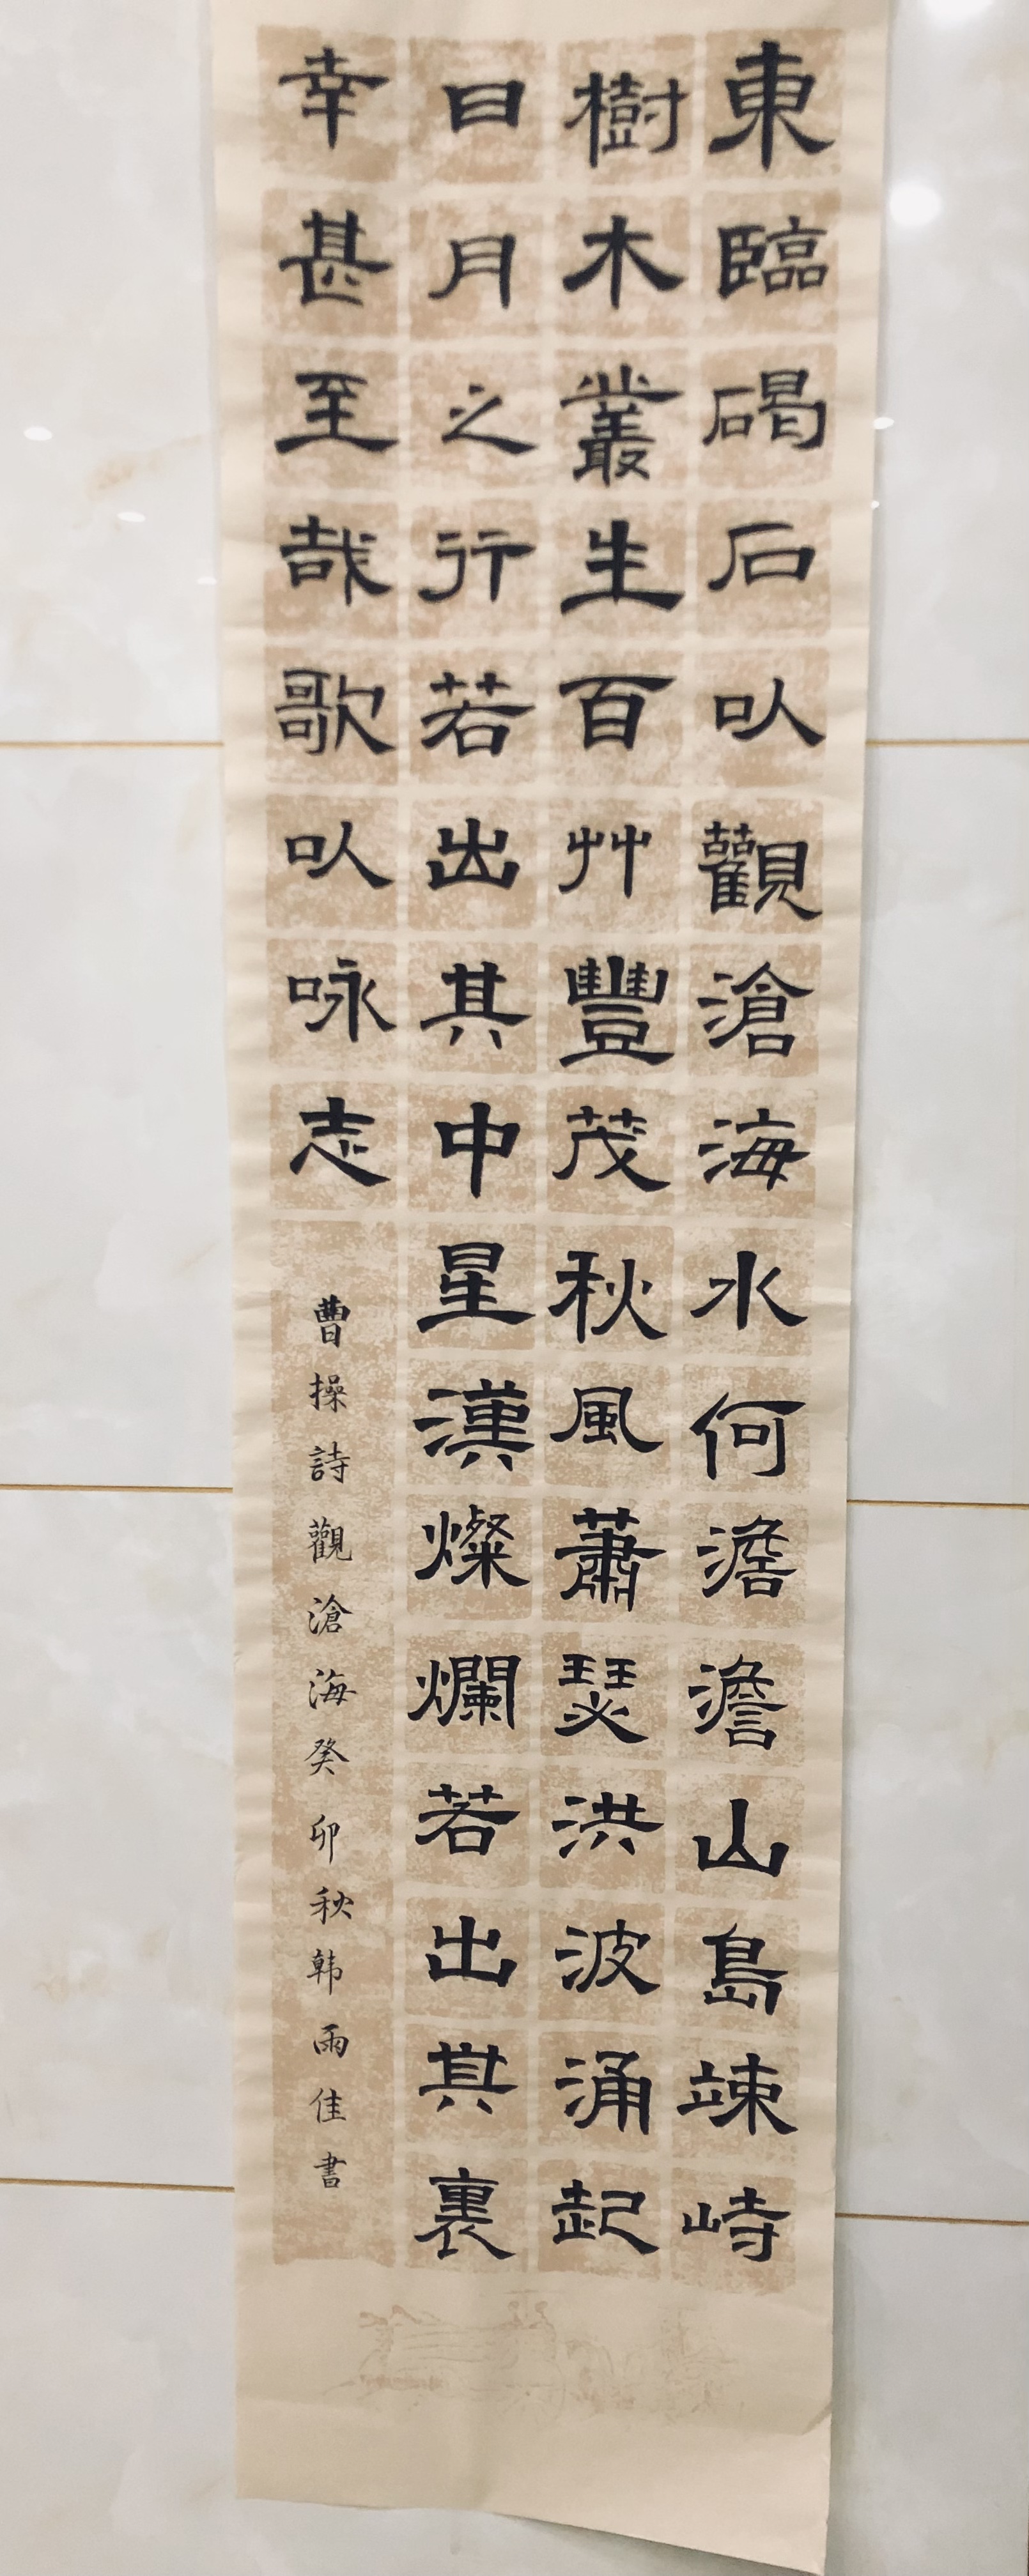 東臨碣石㕥觀滄海水何澹澹山島竦峙
樹木叢生百艸豐茂秋風蕭瑟洪波涌起
日月之行若出其中星漢燦爛若出其裏
幸甚至哉歌㕥咏志
曹操詩觀滄海癸卯秋韩雨佳書